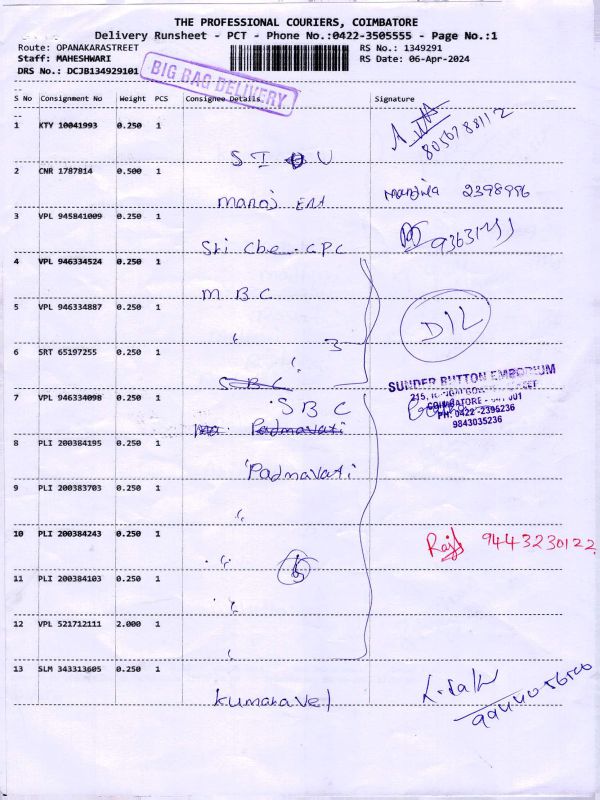 THE PROFESSIONAL COURIERS, COIMBATORE
Delivery Runsheet - PCT - Phone No.:0422-3505555 - Page No.:1
Route: OPANAKARASTREET
RS No.: 1349291
Staff: MAHESHWARI
RS Date: 06-Apr-2024
DRS No.: DCJB134929101
BIG BAG DELIVERY
S No Consignment No Weight PCS Consignee Details Signature
1 KTY 10041993 0.250 1
8056788112
S I U
2 CNR 1787814 0.500 1
Manoj EM 2398996
3 VPL 945841009 0.250 1
Sri Cbe. CPC
4 VPL 946334524 0.250 1
M B C
5 VPL 946334887 0.250 1
D/L
" 3
6 SRT 65197255 0.250 1
"
SBC
SUNDER BUTTON EMPORIUM
7 VPL 946334098 0.250 1
COIMBATORE - 641 001
S B C
PH: 0422-2396236
9843035236
Padmavati
8 PLI 200384195 0.250 1
Padmavati
9 PLI 200383703 0.250 1
"
10 PLI 200384243 0.250 1
Raj 9443230122
"
11 PLI 200384103 0.250 1
"
12 VPL 521712111 2.000 1
"
13 SLM 343313605 0.250 1
Kumaravel